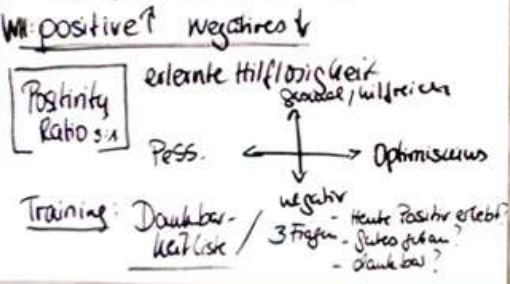 WH: positive↑ negatives↓
Positivity
Ratio 3:1
erlernte Hilflosigkeit
/hilfreich
Pess. Optimismus
negativ
Training: Dankbar-
keitliste / 3 Fragen
- Heute Positiv erlebt?
- Gutes getan?
- dankbar?